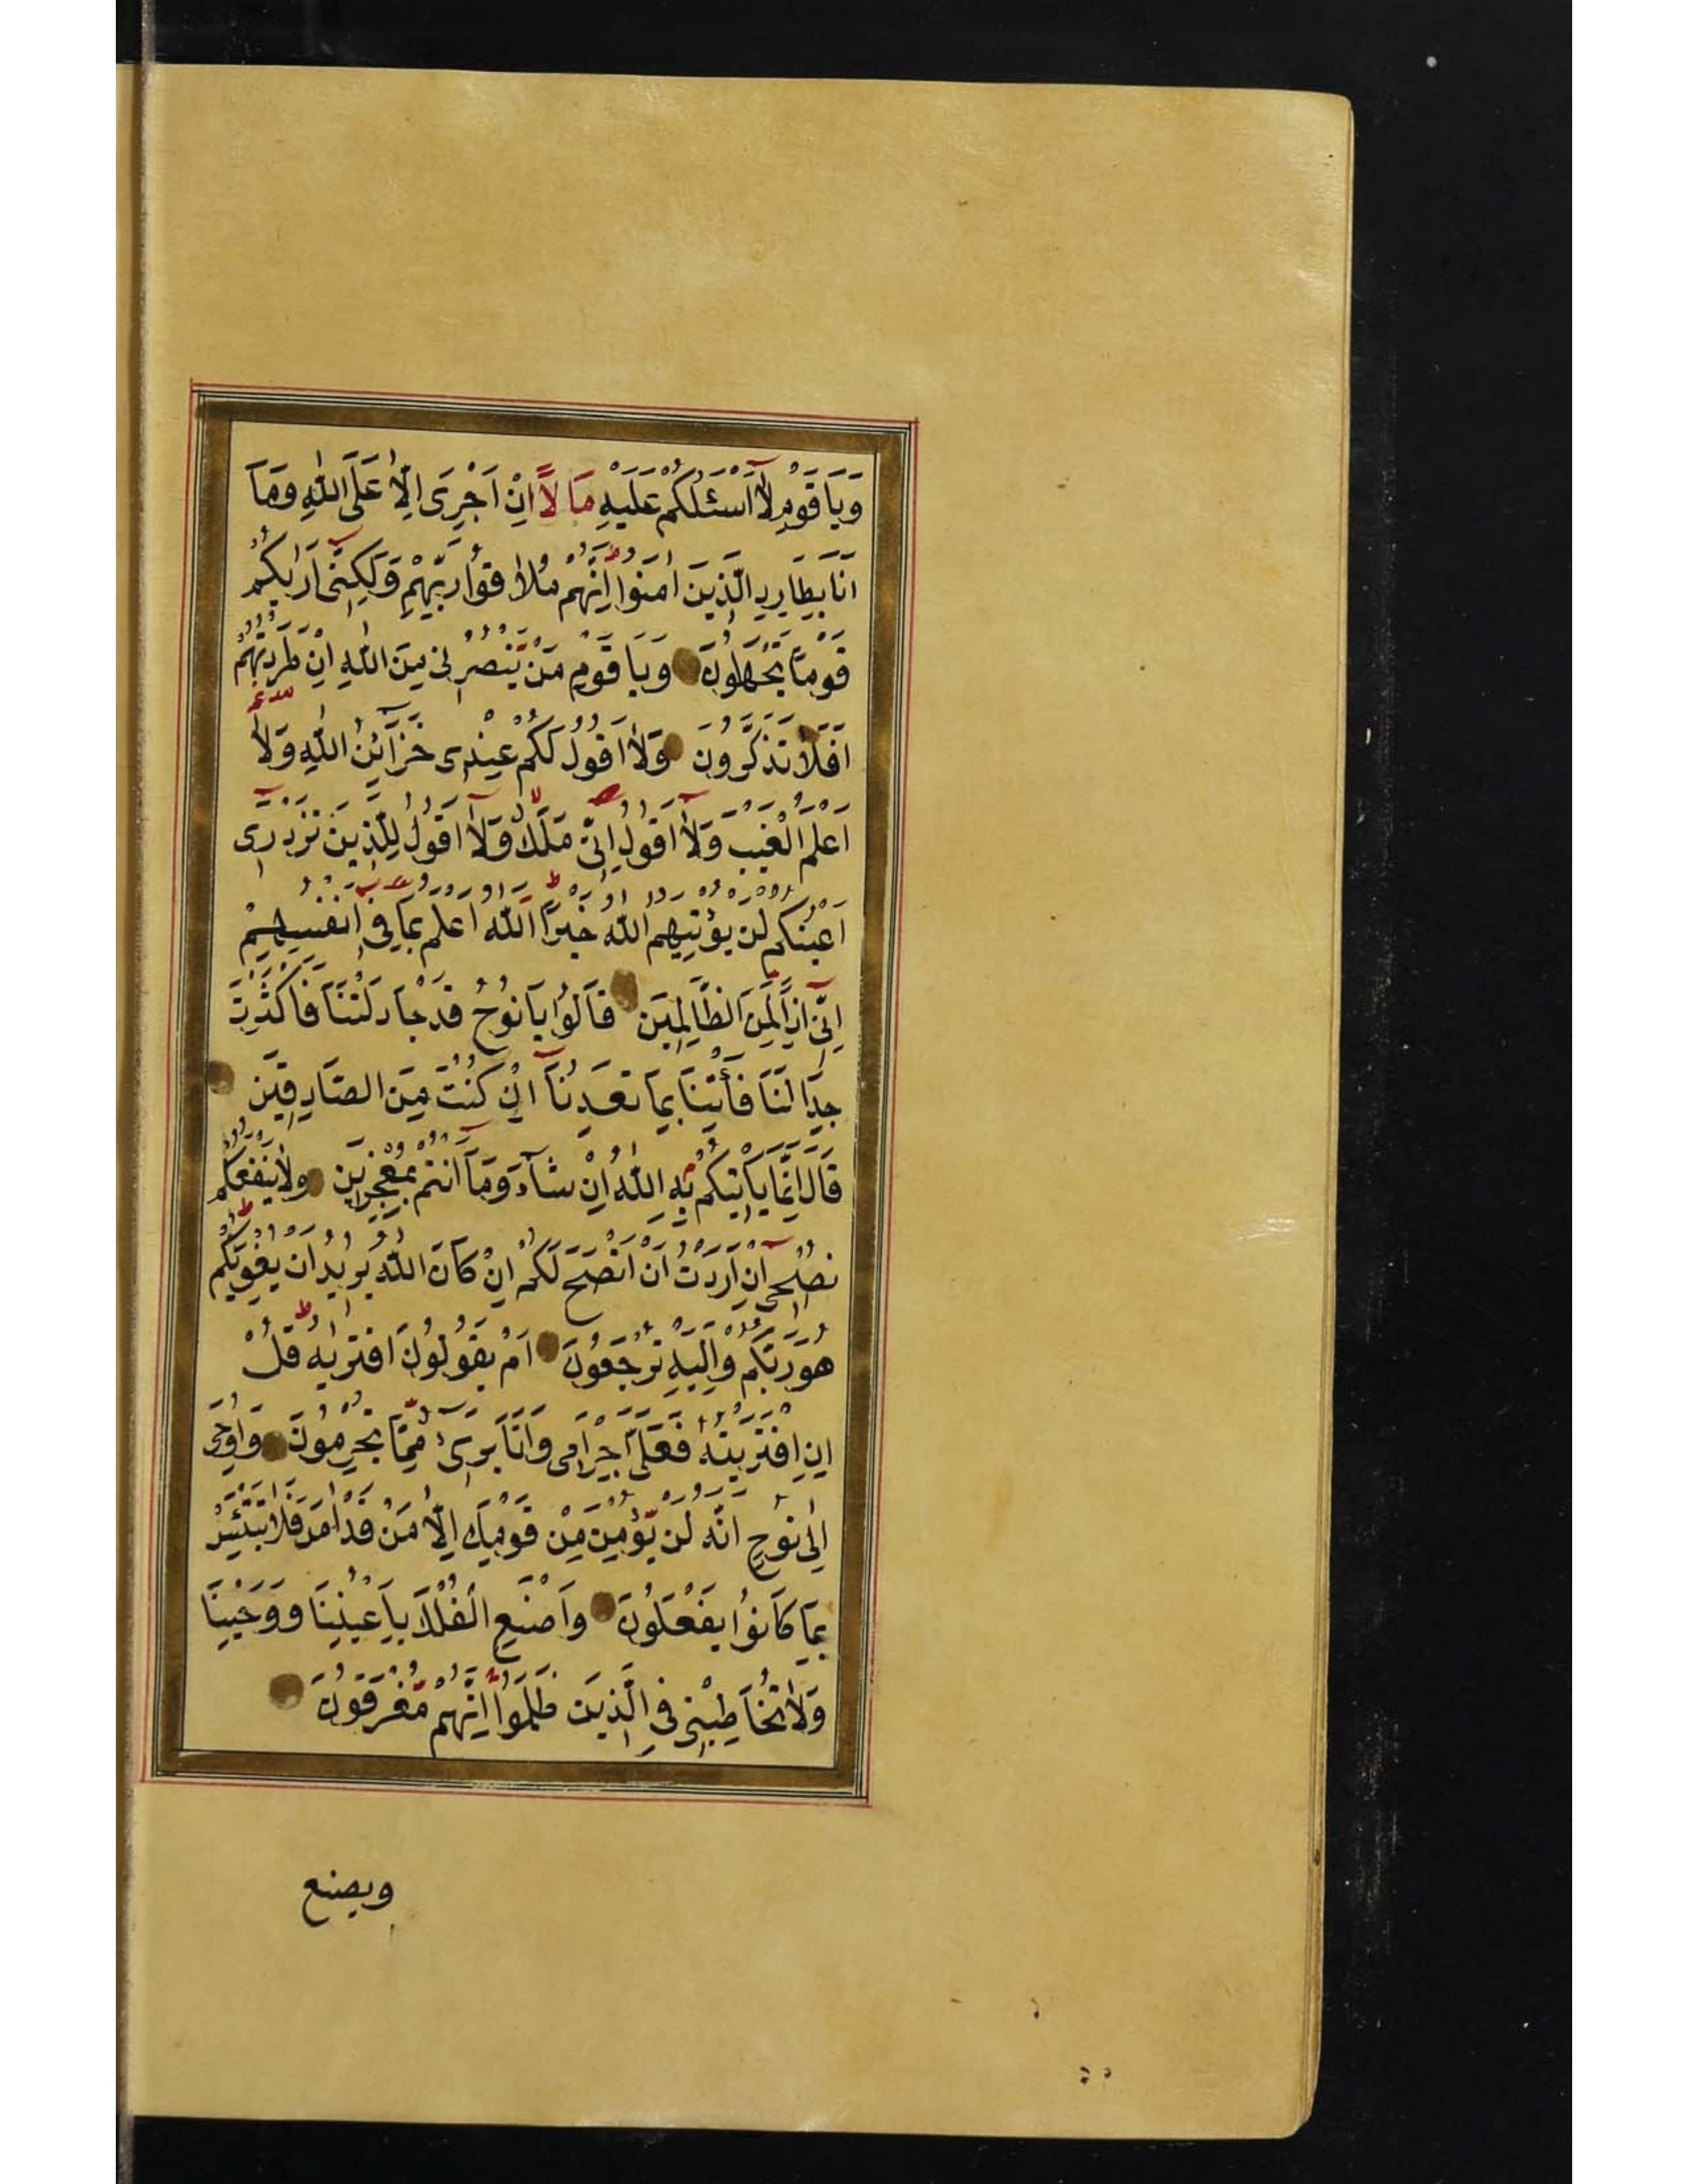 وَيَا قَوْمِ لَآ اَسْئَلُكُمْ عَلَيْهِ مَالًا اِنْ اَجْرِىَ اِلَّا عَلَى اللّٰهِ وَمَآ
اَنَا بِطَارِدِ الَّذِينَ اٰمَنُوا اِنَّهُمْ مُلَاقُوا رَبِّهِمْ وَلٰكِنِّى اَرٰيكُمْ
قَوْمًا تَجْهَلُونَ وَيَا قَوْمِ مَنْ يَنْصُرُنِى مِنَ اللّٰهِ اِنْ طَرَدْتُهُمْ
اَفَلَا تَذَكَّرُونَ وَلَا اَقُولُ لَكُمْ عِنْدِى خَزَآئِنُ اللّٰهِ وَلَا
اَعْلَمُ الْغَيْبَ وَلَآ اَقُولُ اِنِّى مَلَكٌ وَلَآ اَقُولُ لِلَّذِينَ تَزْدَرِى
اَعْيُنُكُمْ لَنْ يُؤْتِيَهُمُ اللّٰهُ خَيْرًا اَللّٰهُ اَعْلَمُ بِمَا فِى اَنْفُسِهِمْ
اِنِّى اِذًا لَمِنَ الظَّالِمِينَ قَالُوا يَا نُوحُ قَدْ جَادَلْتَنَا فَاَكْثَرْتَ
جِدَالَنَا فَأْتِنَا بِمَا تَعِدُنَآ اِنْ كُنْتَ مِنَ الصَّادِقِينَ
قَالَ اِنَّمَا يَاْتِيكُمْ بِهِ اللّٰهُ اِنْ شَآءَ وَمَآ اَنْتُمْ بِمُعْجِزِينَ وَلَا يَنْفَعُكُمْ
نُصْحِىٓ اِنْ اَرَدْتُ اَنْ اَنْصَحَ لَكُمْ اِنْ كَانَ اللّٰهُ يُرِيدُ اَنْ يُغْوِيَكُمْ
هُوَ رَبُّكُمْ وَاِلَيْهِ تُرْجَعُونَ اَمْ يَقُولُونَ افْتَرٰيهُ قُلْ
اِنِ افْتَرَيْتُهُ فَعَلَىَّ اِجْرَامِى وَاَنَا بَرِىٓءٌ مِمَّا تُجْرِمُونَ وَاُوحِىَ
اِلٰى نُوحٍ اَنَّهُ لَنْ يُؤْمِنَ مِنْ قَوْمِكَ اِلَّا مَنْ قَدْ اٰمَنَ فَلَا تَبْتَئِسْ
بِمَا كَانُوا يَفْعَلُونَ وَاصْنَعِ الْفُلْكَ بِاَعْيُنِنَا وَوَحْيِنَا
وَلَا تُخَاطِبْنِى فِى الَّذِينَ ظَلَمُوا اِنَّهُمْ مُغْرَقُونَ
ويصنع